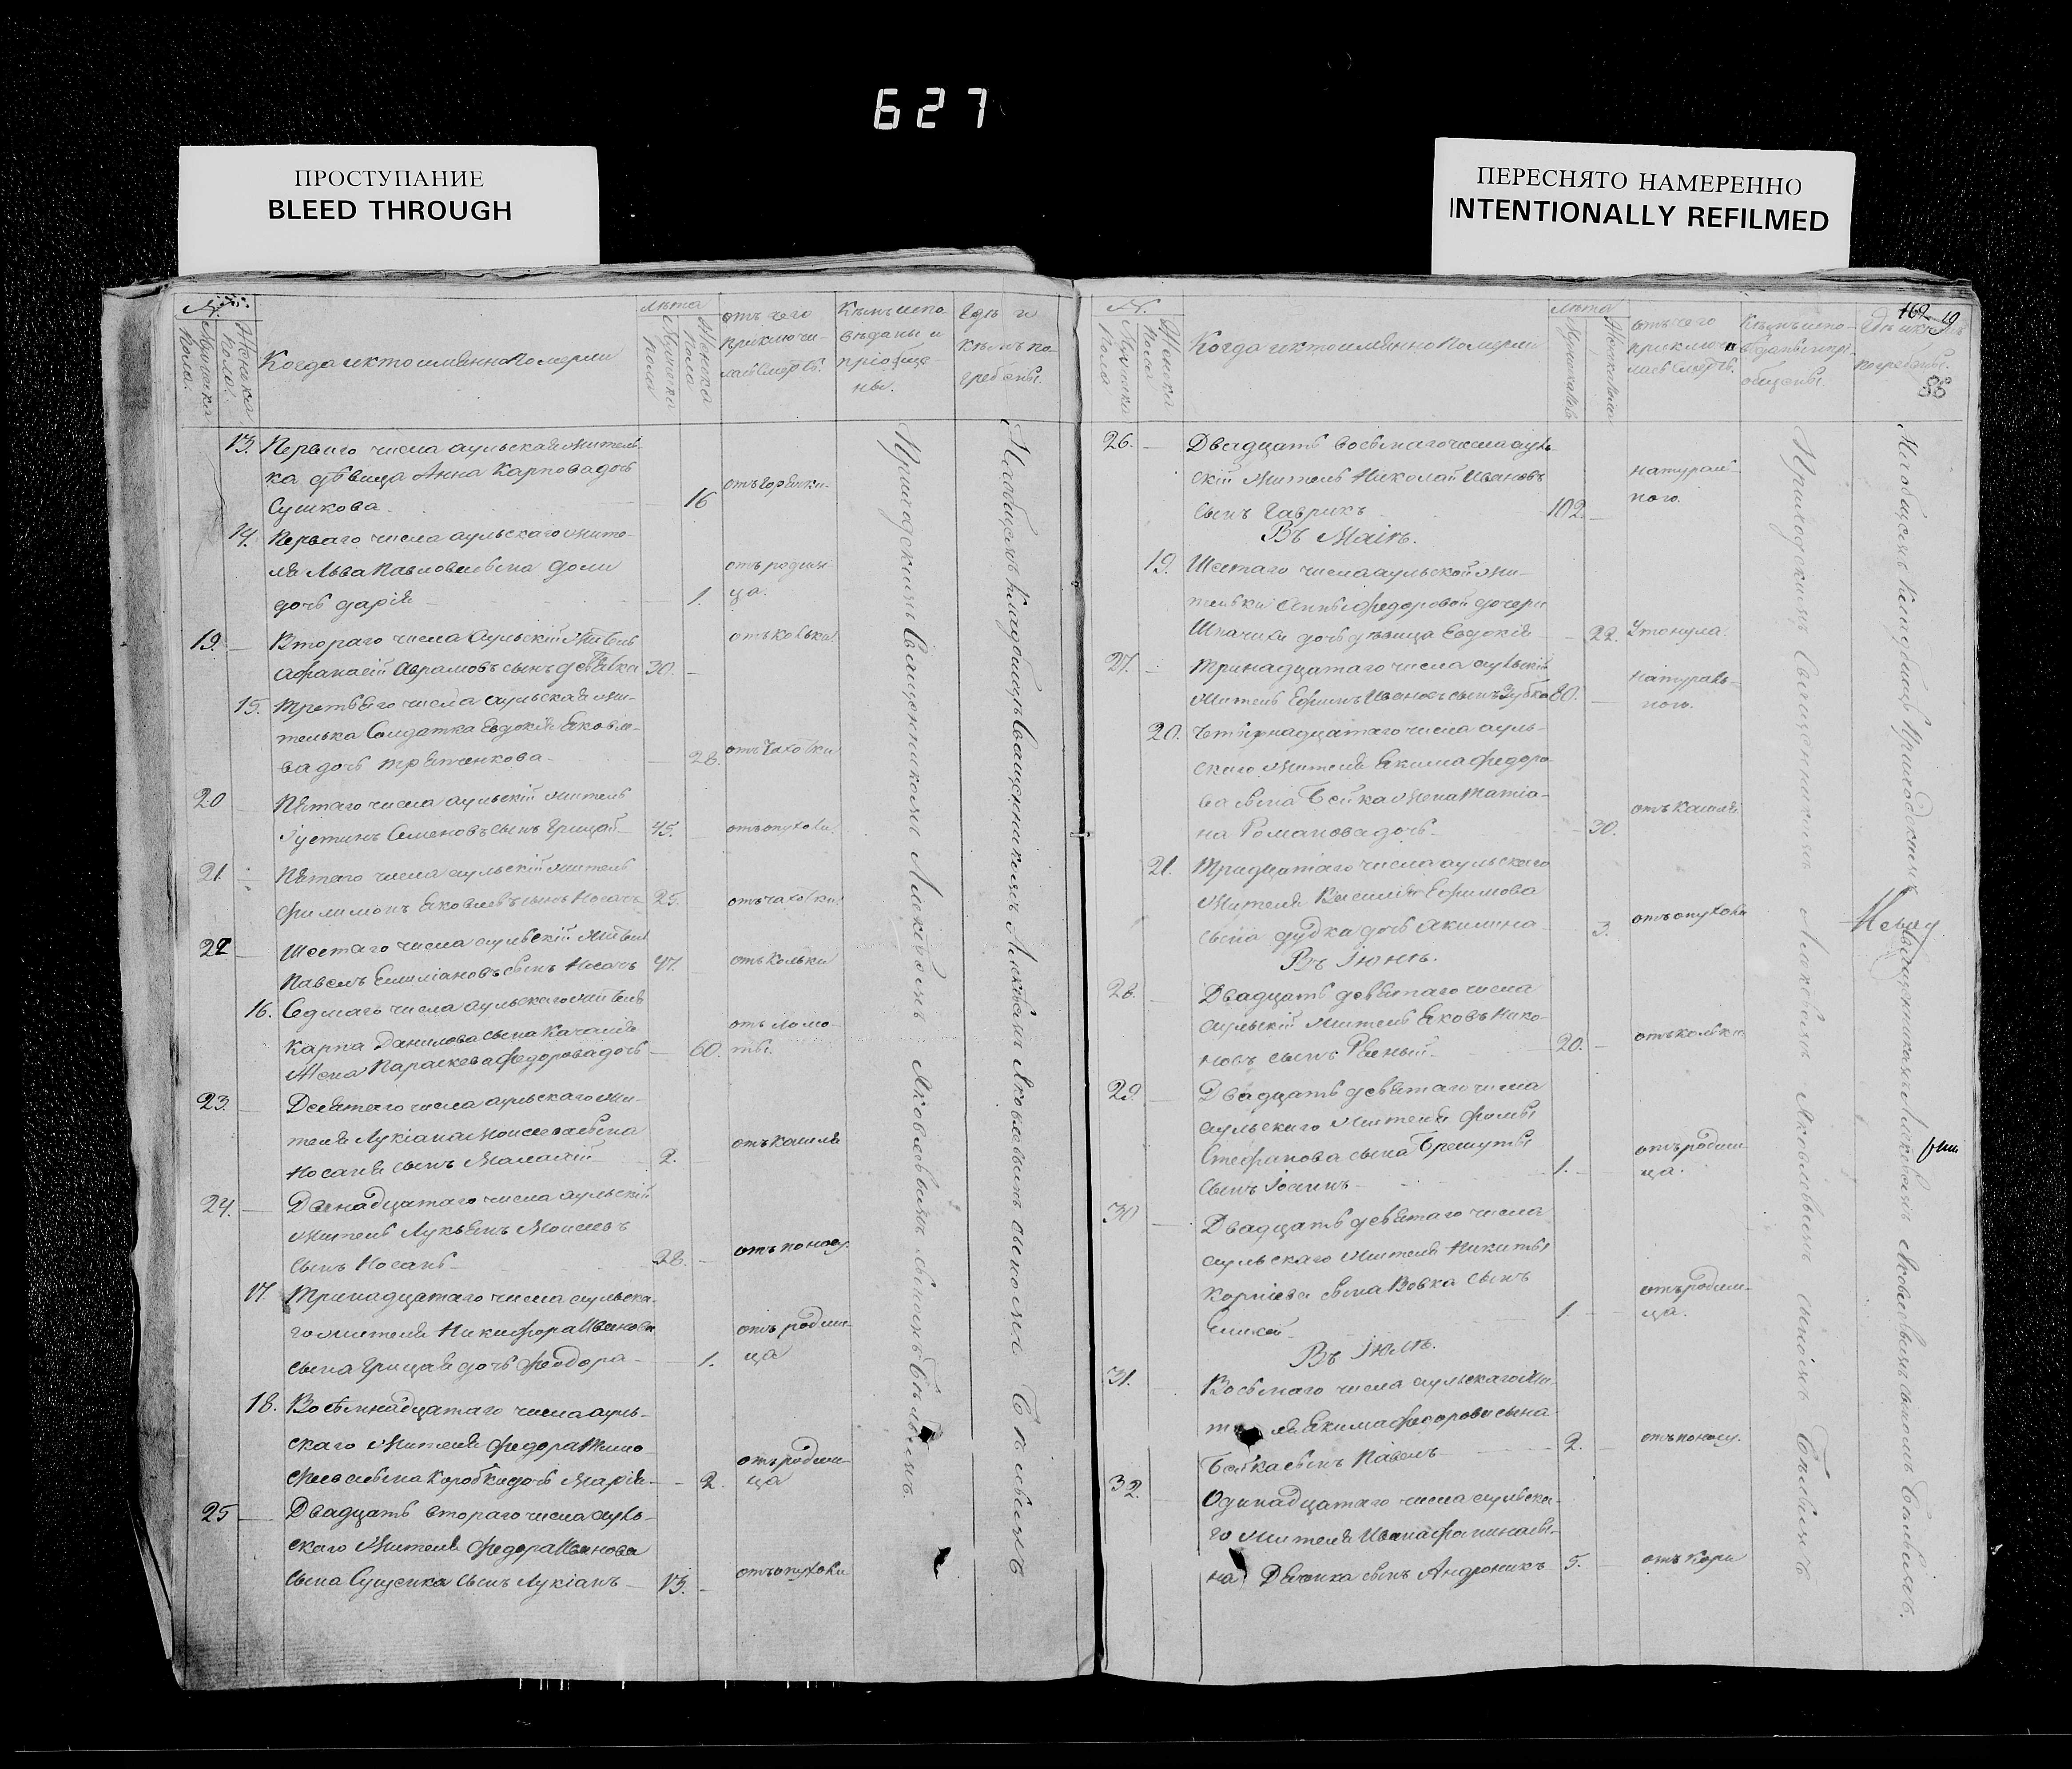 627
ПРОСТУПАНИЕ
BLEED THROUGH
ПЕРЕСНЯТО НАМЕРЕННО
INTENTIONALLY REFILMED
№.
Мужеска пола.
Женска пола.
Когда и кто имянно померли
лѣта
Мужеска пола
Женска пола
отъ чего
приключи-
лась смерть.
Кѣмъ испо-
вѣданы и
пріобще-
ны.
Гдѣ и
кѣмъ по-
гребены.
13. Перваго числа аульская житель-
ка дѣвица Анна Карпова дочь
Сушкова 16 отъ горячки
14. Перваго числа аульскаго жите-
ля Льва Павлова сына
дочь Дарія 1. отъ родим-
ца.
19. Втораго числа аульскій житель
Афанасій Аврамовъ сынъ Девятка 30. отъ колька
15. Третьяго числа аульская жи-
телька Солдатка Евдокія Яковле-
ва дочь 28. отъ чахотки
20 Пятаго числа аульскій житель
Іустинъ Семеновъ сынъ Грицай 45. отъ опухоли.
21. Пятаго числа аульскій житель
Филимонъ Яковлевъ сынъ Носачъ 25. отъ чахотки
22 Шестаго числа аульскій житель
Павелъ Емиліановъ сынъ Носачъ 47. отъ кольки
16. Седмаго числа аульскаго жителя
Карпа Данилова сына
жена Параскева Федорова дочь 60. отъ ломо-
ты.
23. Десятаго числа аульскаго жи-
теля Лукіана Моисеева сына
Носача сынъ Малахій 2. отъ кашля
24. Двенадцатаго числа аульскій
житель Лукьянъ Моисеевъ
сынъ Носачъ 28. отъ поносу.
17. Тринадцатаго числа аульска-
го жителя Никифора Иванова
сына Грицая дочь Феодора 1. отъ родим-
ца
18. Восемнадцатаго числа ауль-
скаго жителя Федора Тимо-
феева сына Коробки дочь Марія 2. отъ родим-
ца
25 Двадцать втораго числа ауль-
скаго жителя Федора Иванова
сына Сущенка сынъ Лукіанъ 13. отъ опухоли
Приходскимъ Священникомъ Алексѣемъ Яковлевымъ сыномъ
На общемъ кладбищѣ Священникомъ Алексѣемъ Яковлевымъ сыномъ
169
19
86
№.
Мужеска пола
Женска пола
Когда и кто имянно померли
лѣта
отъ чего
приключи-
лась смерть.
Кѣмъ испо-
вѣданы и прі-
общены.
погребены.
26. Двадцать восьмаго числа ауль-
скій житель Николай Ивановъ
сынъ Гаврикъ 102. натураль-
ного.
Въ Маіѣ.
19. Шестаго числа аульской жи-
тельки Анны Федоровой дочери
дочь дѣвица Евдокія 22. Утонула.
27. Тринадцатаго числа аульскій
житель Ефимъ Ивановъ сынъ Зубко 80. натураль-
ного.
20. Четырнадцатаго числа ауль-
скаго жителя Якима Федоро-
ва сына Бейка жена Татіа-
на Романова дочь 30. отъ кашля
21. Тридцатаго числа аульскаго
жителя Василія Ефимова
сына Дудка дочь Акилина 3. отъ опухоли
Въ Іюнѣ.
28. Двадцать девятаго числа
аульскій житель Яковъ Нико-
новъ сынъ 20. отъ кольки
29. Двадцать девятаго числа
аульскаго жителя Фомы
Стефанова сына
сынъ Іоаннъ 1. отъ родим-
ца.
30 Двадцать девятаго числа
аульскаго жителя Никиты
Корніева сына Вовка сынъ
Елисей 1. отъ родим-
ца.
Въ Іюлѣ.
31. Восьмаго числа аульскаго жи-
теля Якима Федорова сына
Бейка сынъ Павелъ 2. отъ поносу.
32. Одинадцатаго числа аульска-
го жителя Ивана
на сынъ Андроникъ 5. отъ кори
Приходскимъ Священникомъ Алексѣемъ Яковлевымъ сыномъ
На общемъ кладбищѣ Приходскимъ Священникомъ Алексѣемъ Яковлевымъ сыномъ